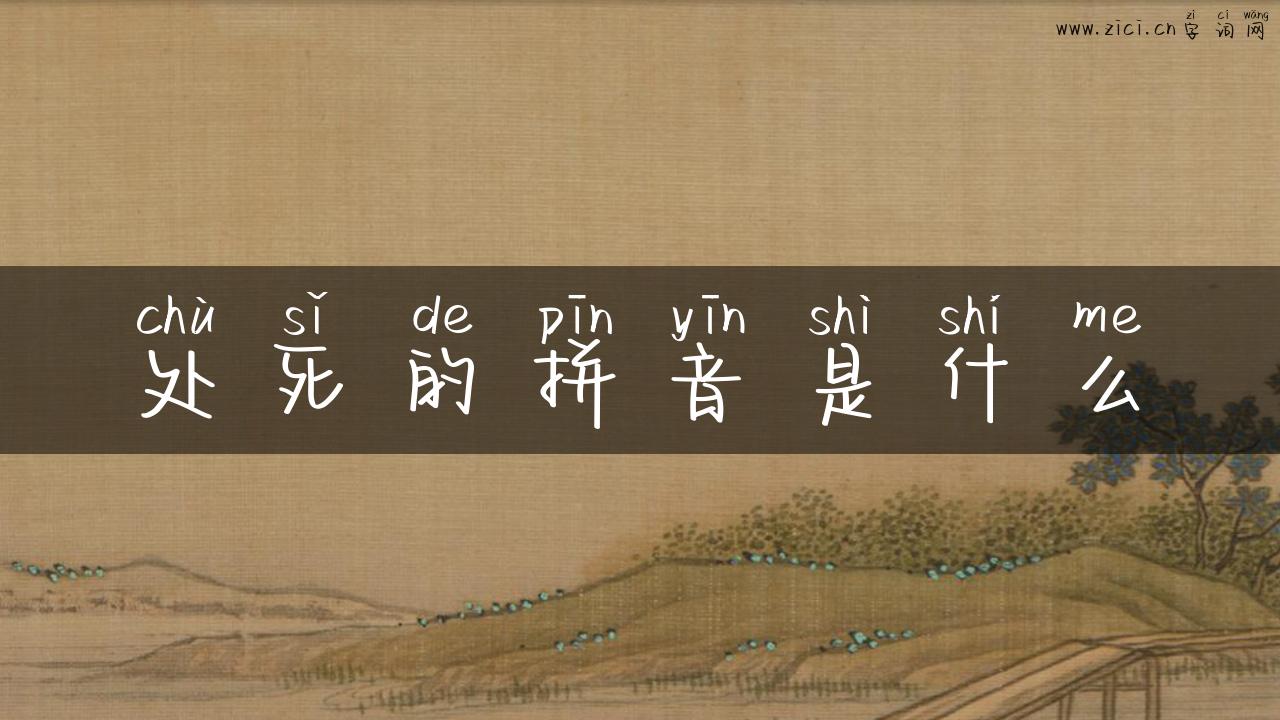 zì cí wǎng
www.zici.cn字词网
chù sǐ de pīn yīn shì shí me
处死的拼音是什么